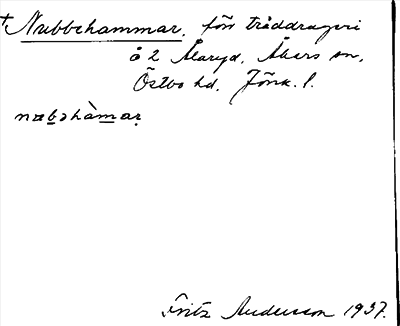 + Nubbehammar, förr tråddrageri
å 2 Ålaryd, Åkers sn,
Östbo hd, Jönk. l.
nɷbəhàmaṛ
Fritz Andersson 1937.